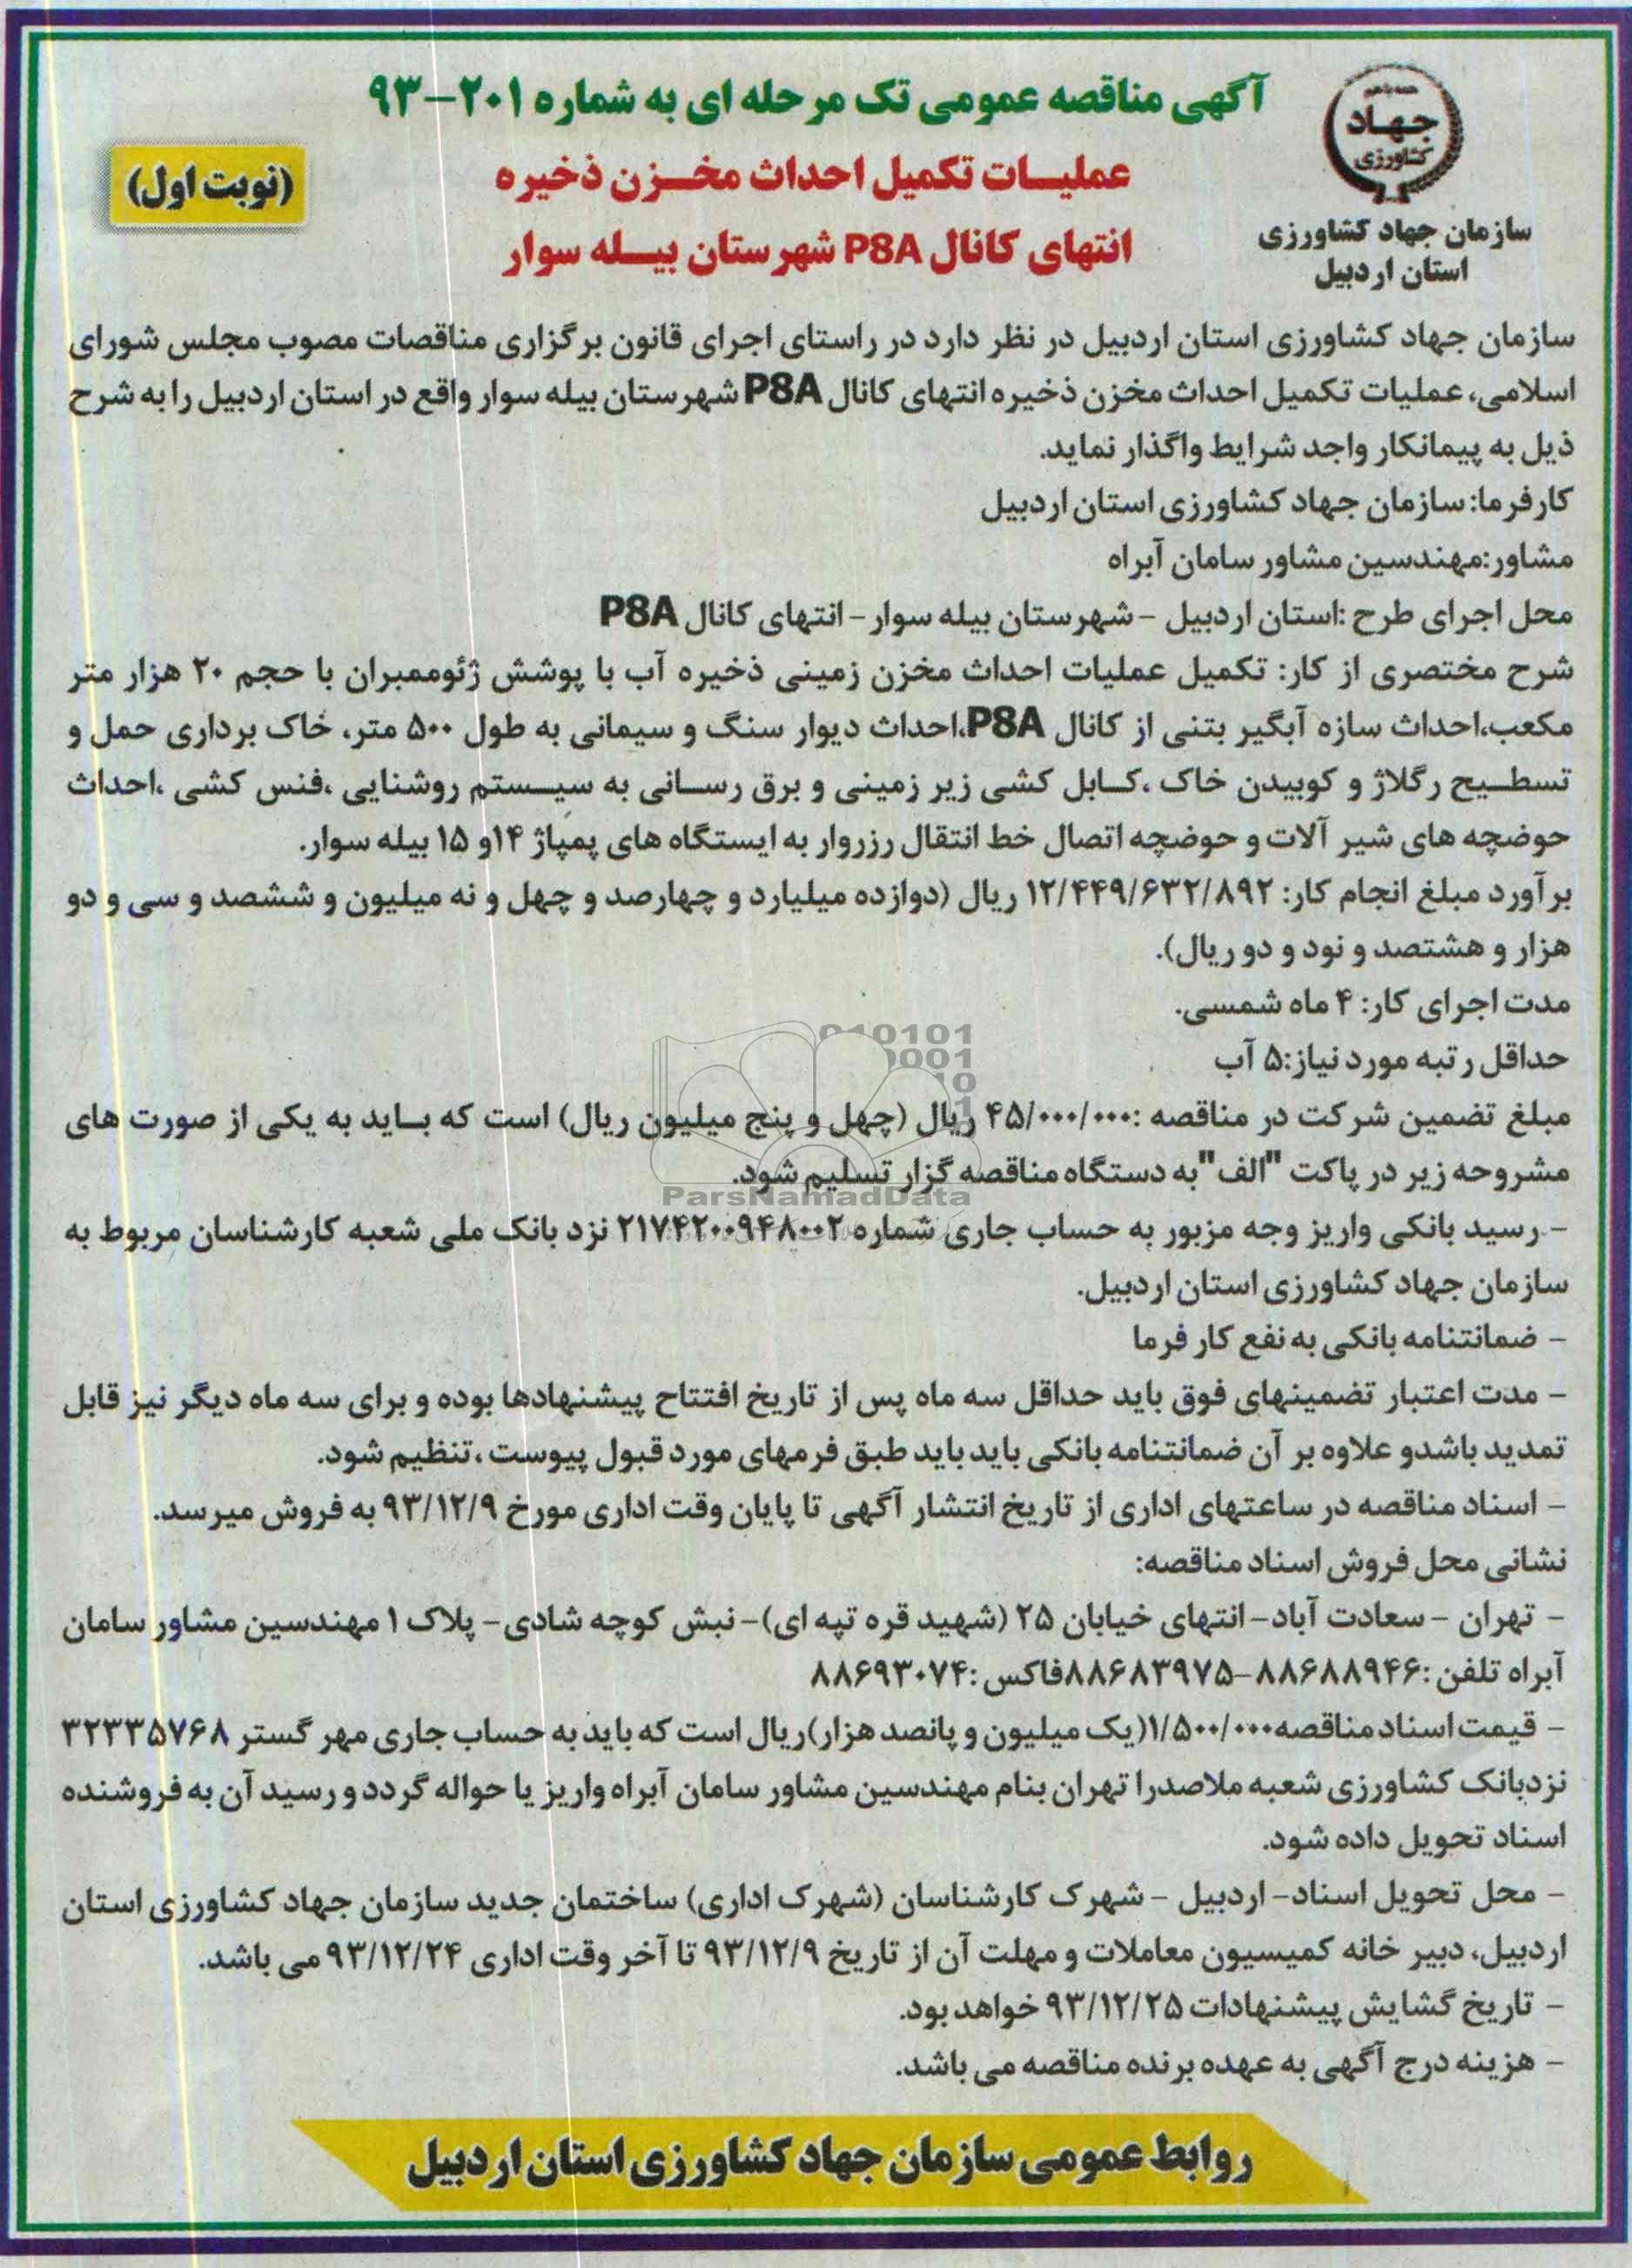 آگهی مناقصه عمومی تک مرحله ای به شماره ۲۰۱-۹۳
جهاد
کشاورزی
سازمان جهاد کشاورزی
استان اردبیل
عملیات تکمیل احداث مخزن ذخیره
انتهای کانال P8A شهرستان بیله سوار
(نوبت اول)
سازمان جهاد کشاورزی استان اردبیل در نظر دارد در راستای اجرای قانون برگزاری مناقصات مصوب مجلس شورای
اسلامی، عملیات تکمیل احداث مخزن ذخیره انتهای کانال P8A شهرستان بیله سوار واقع در استان اردبیل را به شرح
ذیل به پیمانکار واجد شرایط واگذار نماید.
کارفرما: سازمان جهاد کشاورزی استان اردبیل
مشاور:مهندسین مشاور سامان آبراه
محل اجرای طرح :استان اردبیل - شهرستان بیله سوار - انتهای کانال P8A
شرح مختصری از کار: تکمیل عملیات احداث مخزن زمینی ذخیره آب با پوشش ژئوممبران با حجم ۲۰ هزار متر
مکعب،احداث سازه آبگیر بتنی از کانال P8A،احداث دیوار سنگ و سیمانی به طول ۵۰۰ متر، خاک برداری حمل و
تسطیح رگلاژ و کوبیدن خاک ،کابل کشی زیر زمینی و برق رسانی به سیستم روشنایی ،فنس کشی ،احداث
حوضچه های شیر آلات و حوضچه اتصال خط انتقال رزروار به ایستگاه های پمپاژ ۱۴و ۱۵ بیله سوار.
برآورد مبلغ انجام کار: ۱۲/۴۴۹/۶۳۲/۸۹۲ ریال (دوازده میلیارد و چهارصد و چهل و نه میلیون و ششصد و سی و دو
هزار و هشتصد و نود و دو ریال).
مدت اجرای کار: ۴ ماه شمسی.
حداقل رتبه مورد نیاز:۵ آب
مبلغ تضمین شرکت در مناقصه :۴۵/۰۰۰/۰۰۰ ریال (چهل و پنج میلیون ریال) است که باید به یکی از صورت های
مشروحه زیر در پاکت "الف" به دستگاه مناقصه گزار تسلیم شود.
ParsNamadData
- رسید بانکی واریز وجه مزبور به حساب جاری شماره ۲۱۷۴۲۰۰۹۴۸۰۰۲ نزد بانک ملی شعبه کارشناسان مربوط به
سازمان جهاد کشاورزی استان اردبیل.
- ضمانتنامه بانکی به نفع کار فرما
- مدت اعتبار تضمینهای فوق باید حداقل سه ماه پس از تاریخ افتتاح پیشنهادها بوده و برای سه ماه دیگر نیز قابل
تمدید باشدو علاوه بر آن ضمانتنامه بانکی باید باید طبق فرمهای مورد قبول پیوست ،تنظیم شود.
- اسناد مناقصه در ساعتهای اداری از تاریخ انتشار آگهی تا پایان وقت اداری مورخ ۹۳/۱۲/۹ به فروش میرسد.
نشانی محل فروش اسناد مناقصه:
- تهران - سعادت آباد- انتهای خیابان ۲۵ (شهید قره تپه ای)- نبش کوچه شادی- پلاک ۱ مهندسین مشاور سامان
آبراه تلفن :۸۸۶۸۸۹۴۶-۸۸۶۸۳۹۷۵فاکس :۸۸۶۹۳۰۷۴
- قیمت اسناد مناقصه۱/۵۰۰/۰۰۰(یک میلیون و پانصد هزار)ریال است که باید به حساب جاری مهر گستر ۳۲۳۳۵۷۶۸
نزدبانک کشاورزی شعبه ملاصدرا تهران بنام مهندسین مشاور سامان آبراه واریز یا حواله گردد و رسید آن به فروشنده
اسناد تحویل داده شود.
- محل تحویل اسناد- اردبیل - شهرک کارشناسان (شهرک اداری) ساختمان جدید سازمان جهاد کشاورزی استان
اردبیل، دبیر خانه کمیسیون معاملات و مهلت آن از تاریخ ۹۳/۱۲/۹ تا آخر وقت اداری ۹۳/۱۲/۲۴ می باشد.
- تاریخ گشایش پیشنهادات ۹۳/۱۲/۲۵ خواهد بود.
- هزینه درج آگهی به عهده برنده مناقصه می باشد.
روابط عمومی سازمان جهاد کشاورزی استان اردبیل